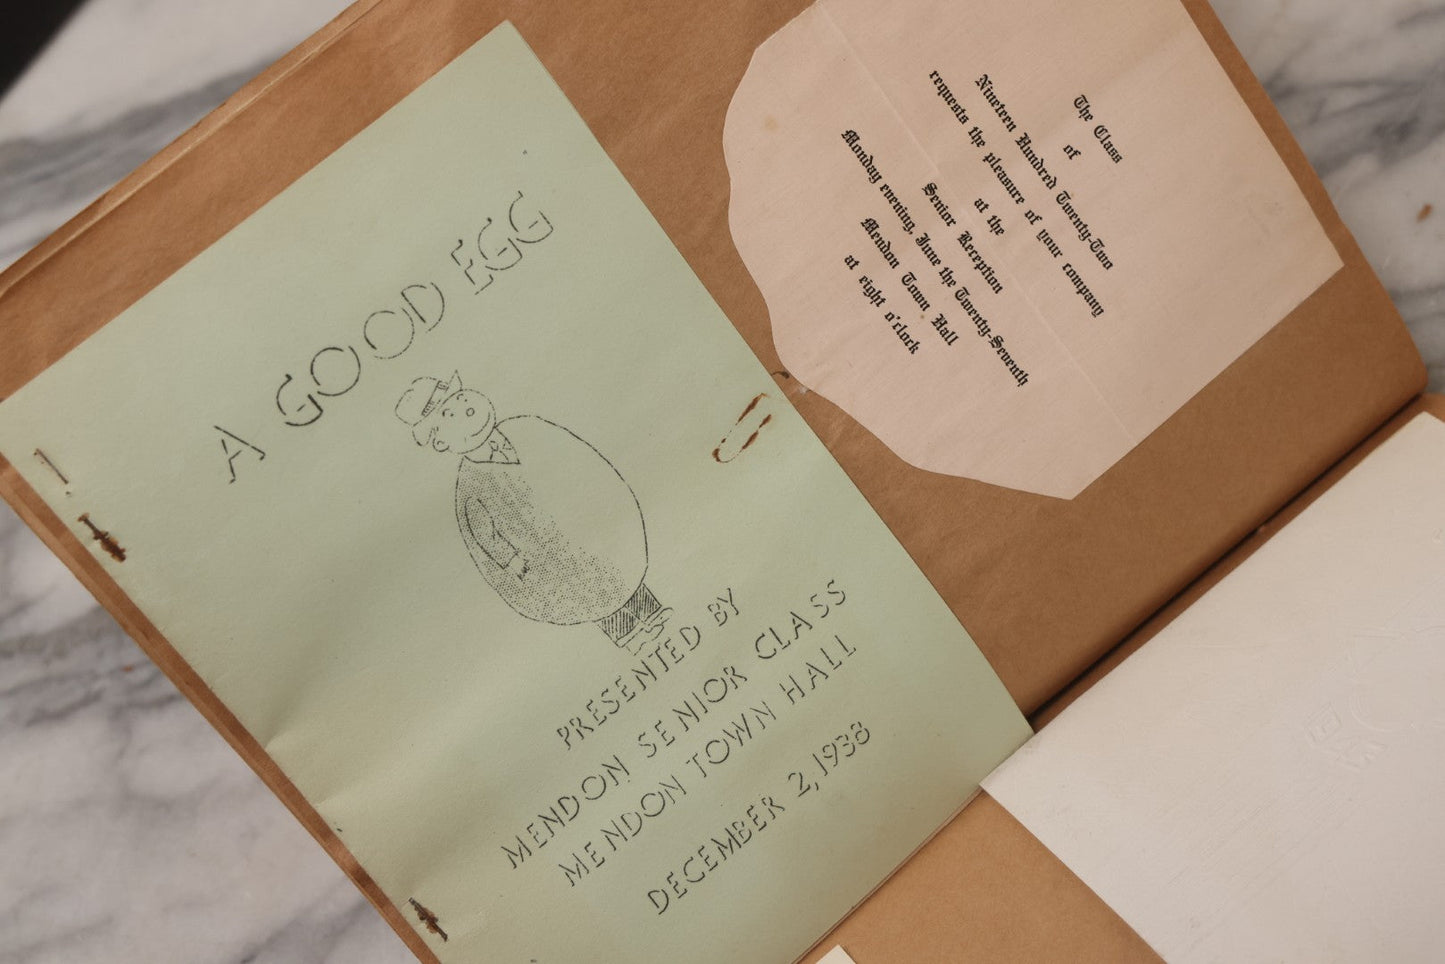 A GOOD EGG
PRESENTED BY
MENDON SENIOR CLASS
MENDON TOWN HALL
DECEMBER 2, 1938
The Class
of
Nineteen Hundred Twenty-Two
requests the pleasure of your company
at the
Senior Reception
Monday evening, June the Twenty-Seventh
Mendon Town Hall
at eight o'clock